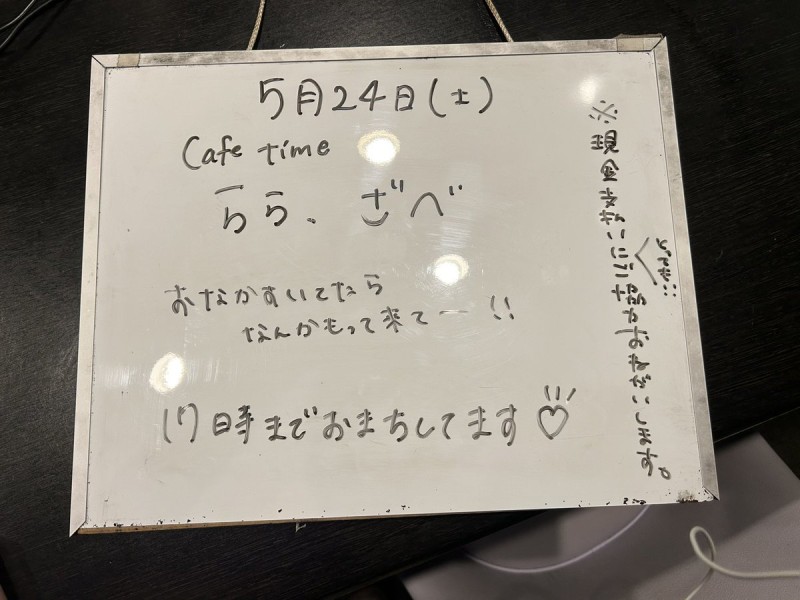 5月24日(土)
Cafe time
らら、ざべ
おなかすいてたら
なんかもって来てー!!
17時までおまちしてます♡
※現金支払いにご協力おねがいします。